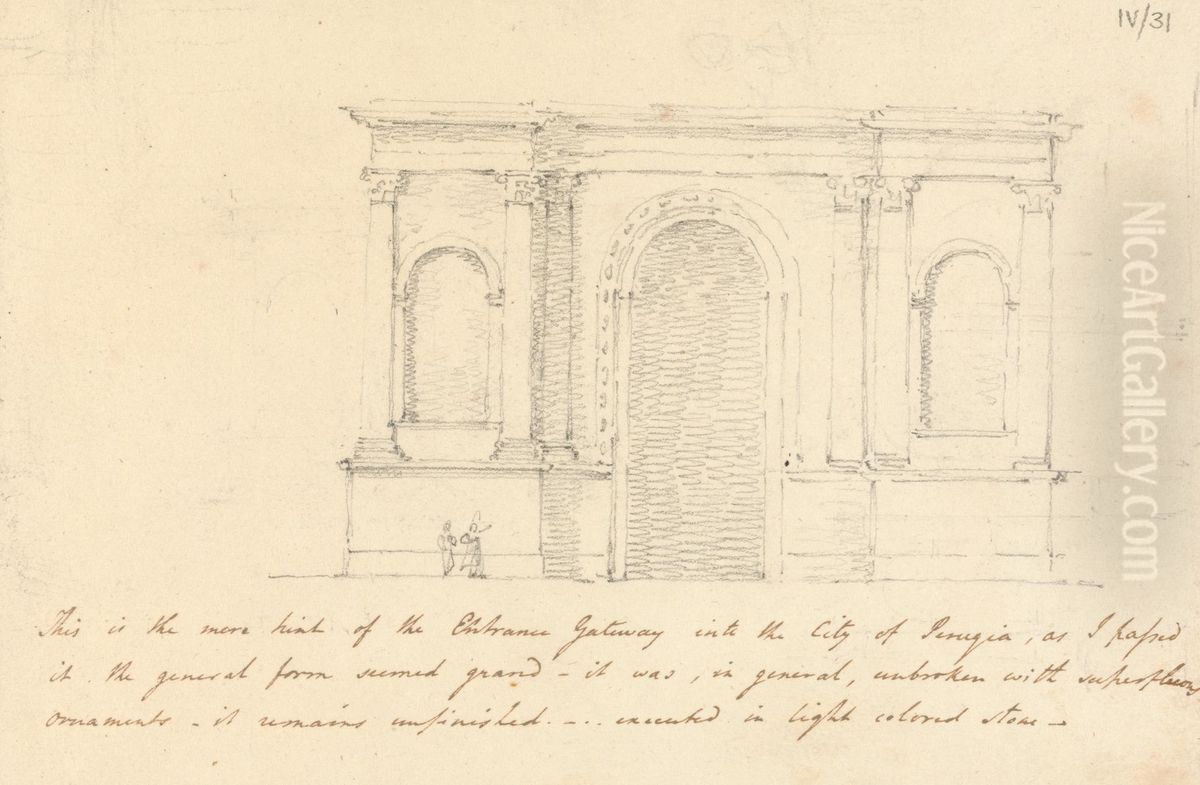 IV/31
This is the mere hint of the Entrance Gateway into the City of Perugia, as I passed
it. the general form seemed grand - it was, in general, unbroken with superfluous
ornaments - it remains unfinished. - .. executed in light colored stone -
NiceArtGallery.com